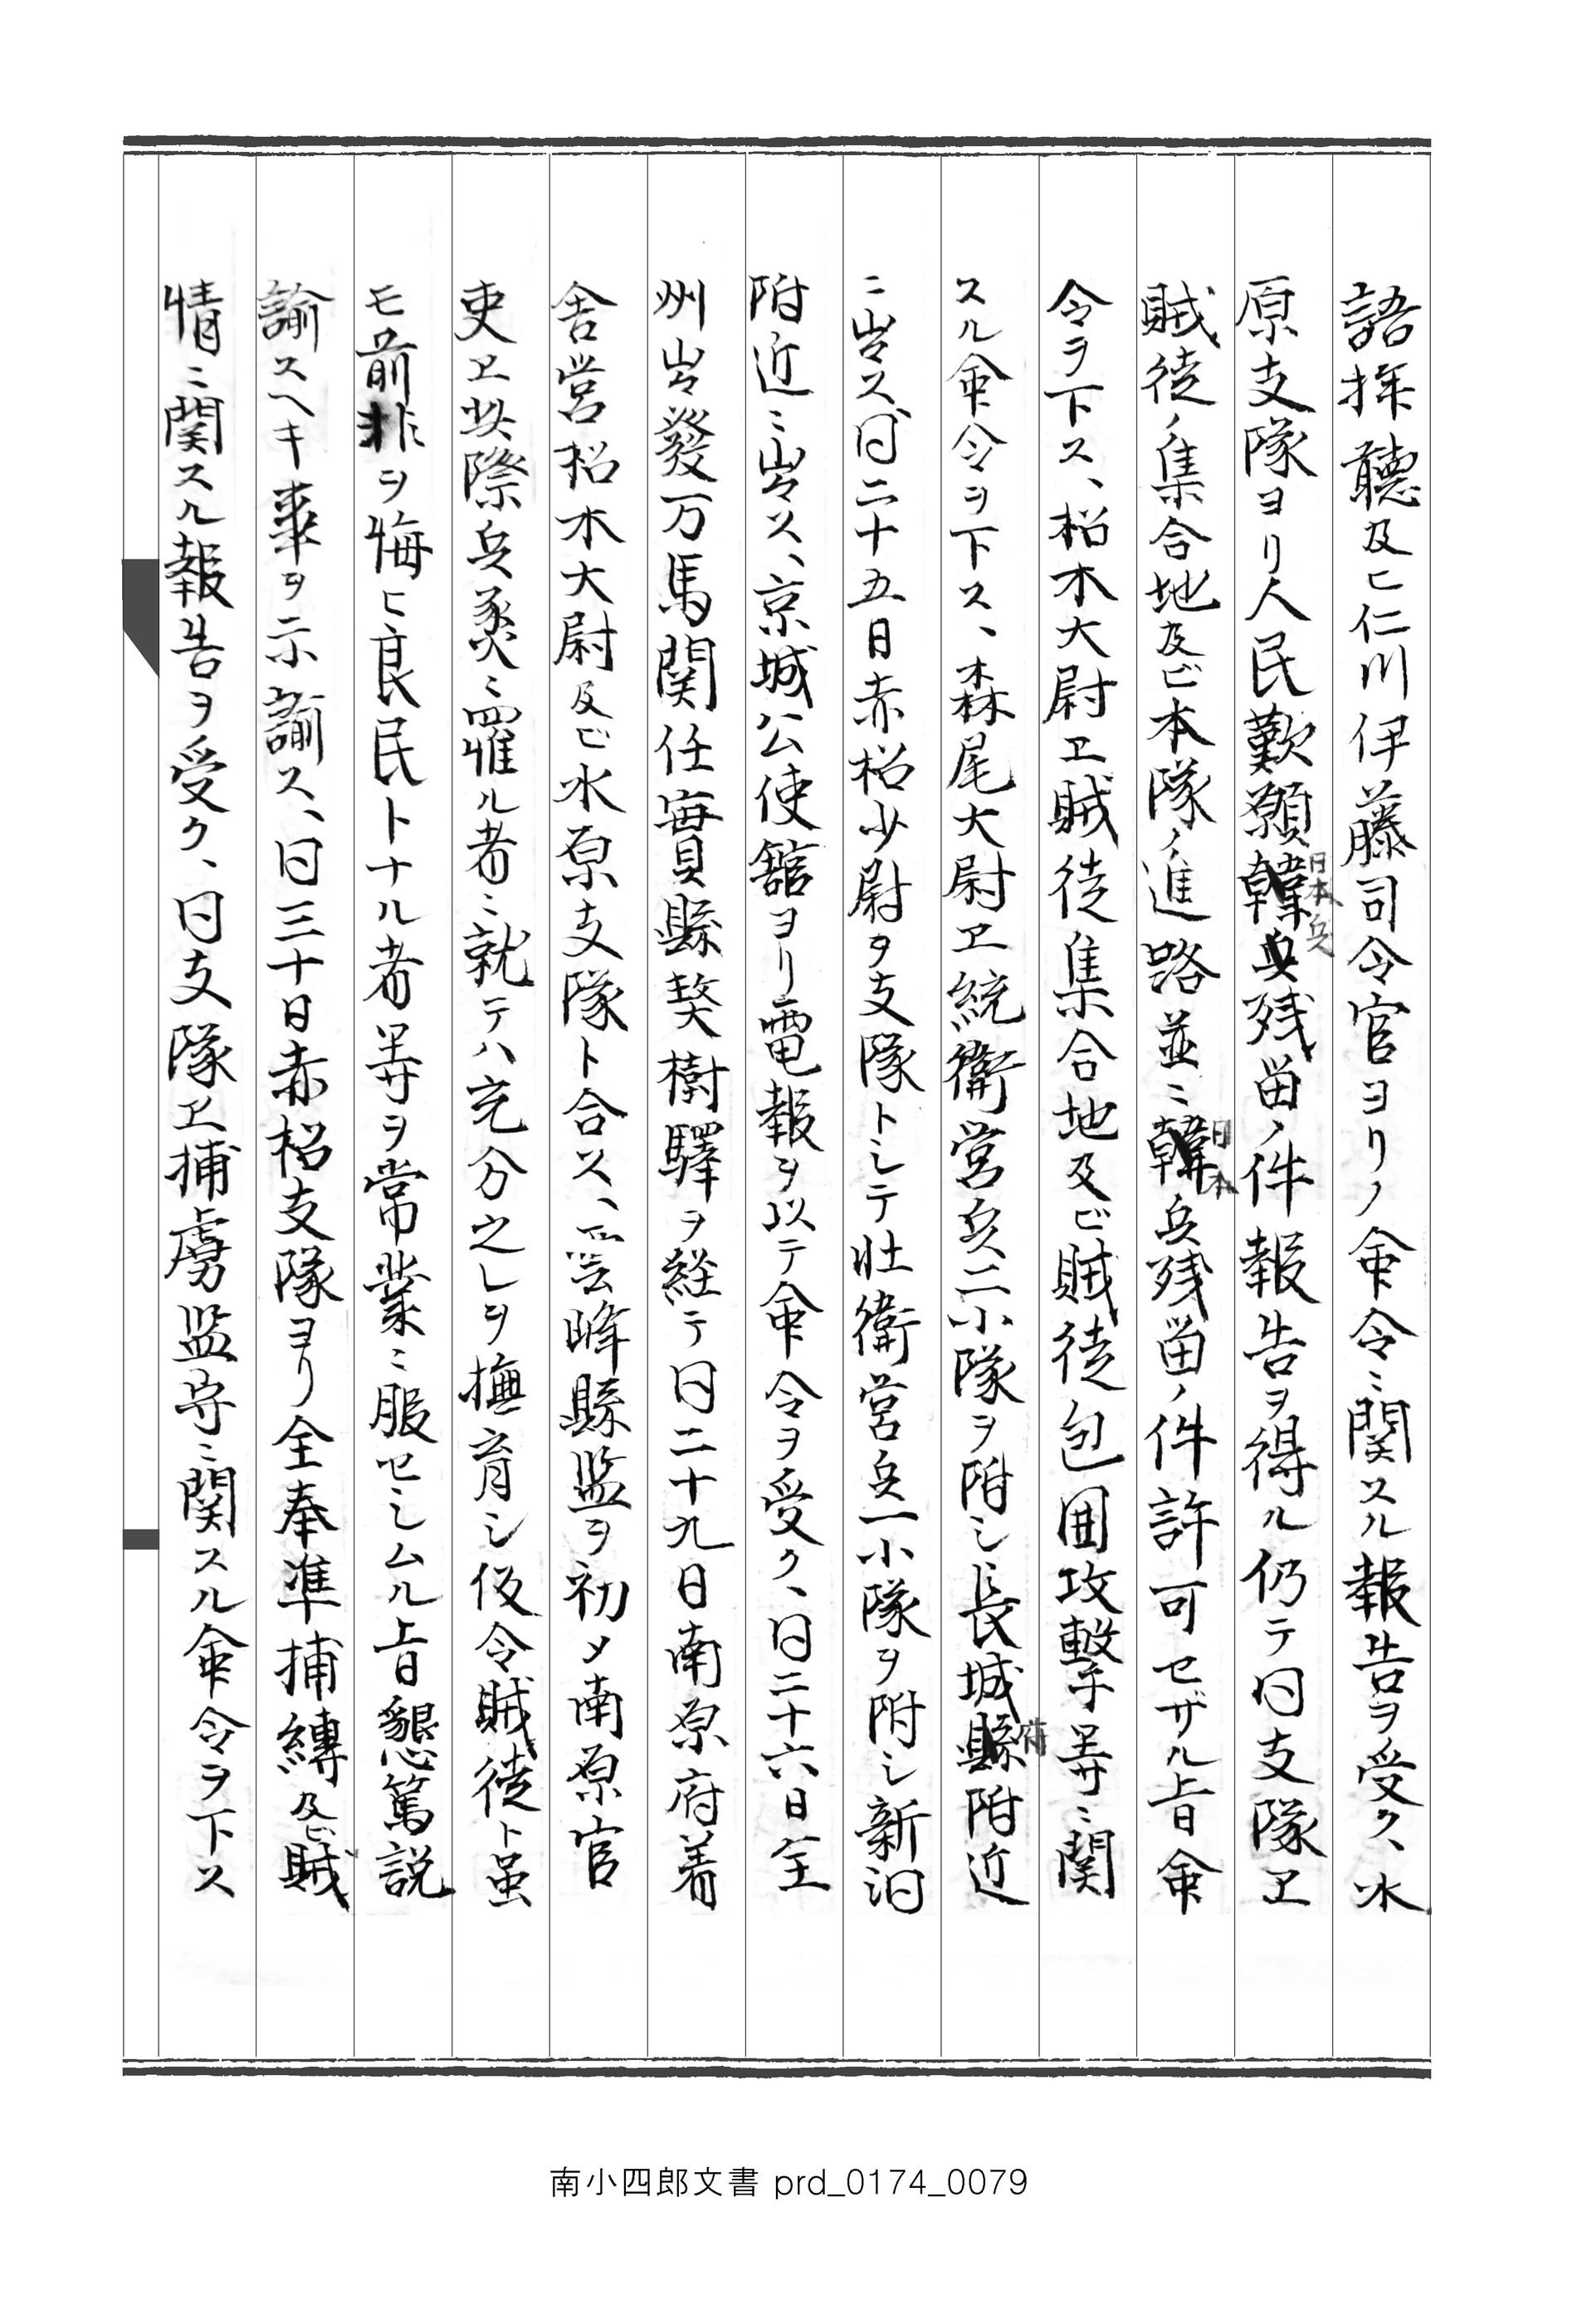 語探聽及ヒ仁川伊藤司令官ヨリノ命令ニ関スル報告ヲ受ク、水
原支隊ヨリ人民歎願日本兵残留ノ件報告ヲ得ル仍テ同支隊ヱ
賊徒ノ集合地及ビ本隊ノ進路並ニ日本兵残留ノ件許可セザル旨命
令ヲ下ス、柗木大尉ヱ賊徒集合地及ビ賊徒包囲攻撃等ニ関
スル命令ヲ下ス、森尾大尉ヱ統衛営兵二小隊ヲ附シ長城府附近
ニ出ス同二十五日赤柗少尉ヲ支隊トシテ壮衛営兵一小隊ヲ附シ新泗
附近ニ出ス、京城公使舘ヨリ電報ヲ以テ命令ヲ受ク、同二十六日全
州出發万馬関任實縣獒樹驛ヲ経テ同二十九日南原府着
舎営柗木大尉及ビ水原支隊ト合ス、雲峰縣監ヲ初メ南原官
吏ヱ此際兵燹ニ罹ル者ニ就テハ充分之レヲ撫育シ仮令賊徒ト虽
モ前非ヲ悔ヒ良民トナル者等ヲ常業ニ服セシムル旨懇篤説
諭スヘキ事ヲ示諭ス、同三十日赤柗支隊ヨリ全奉準捕縛及ビ賊
情ニ関スル報告ヲ受ク、同支隊ヱ捕虜监守ニ関スル命令ヲ下ス
南小四郎文書 prd_0174_0079